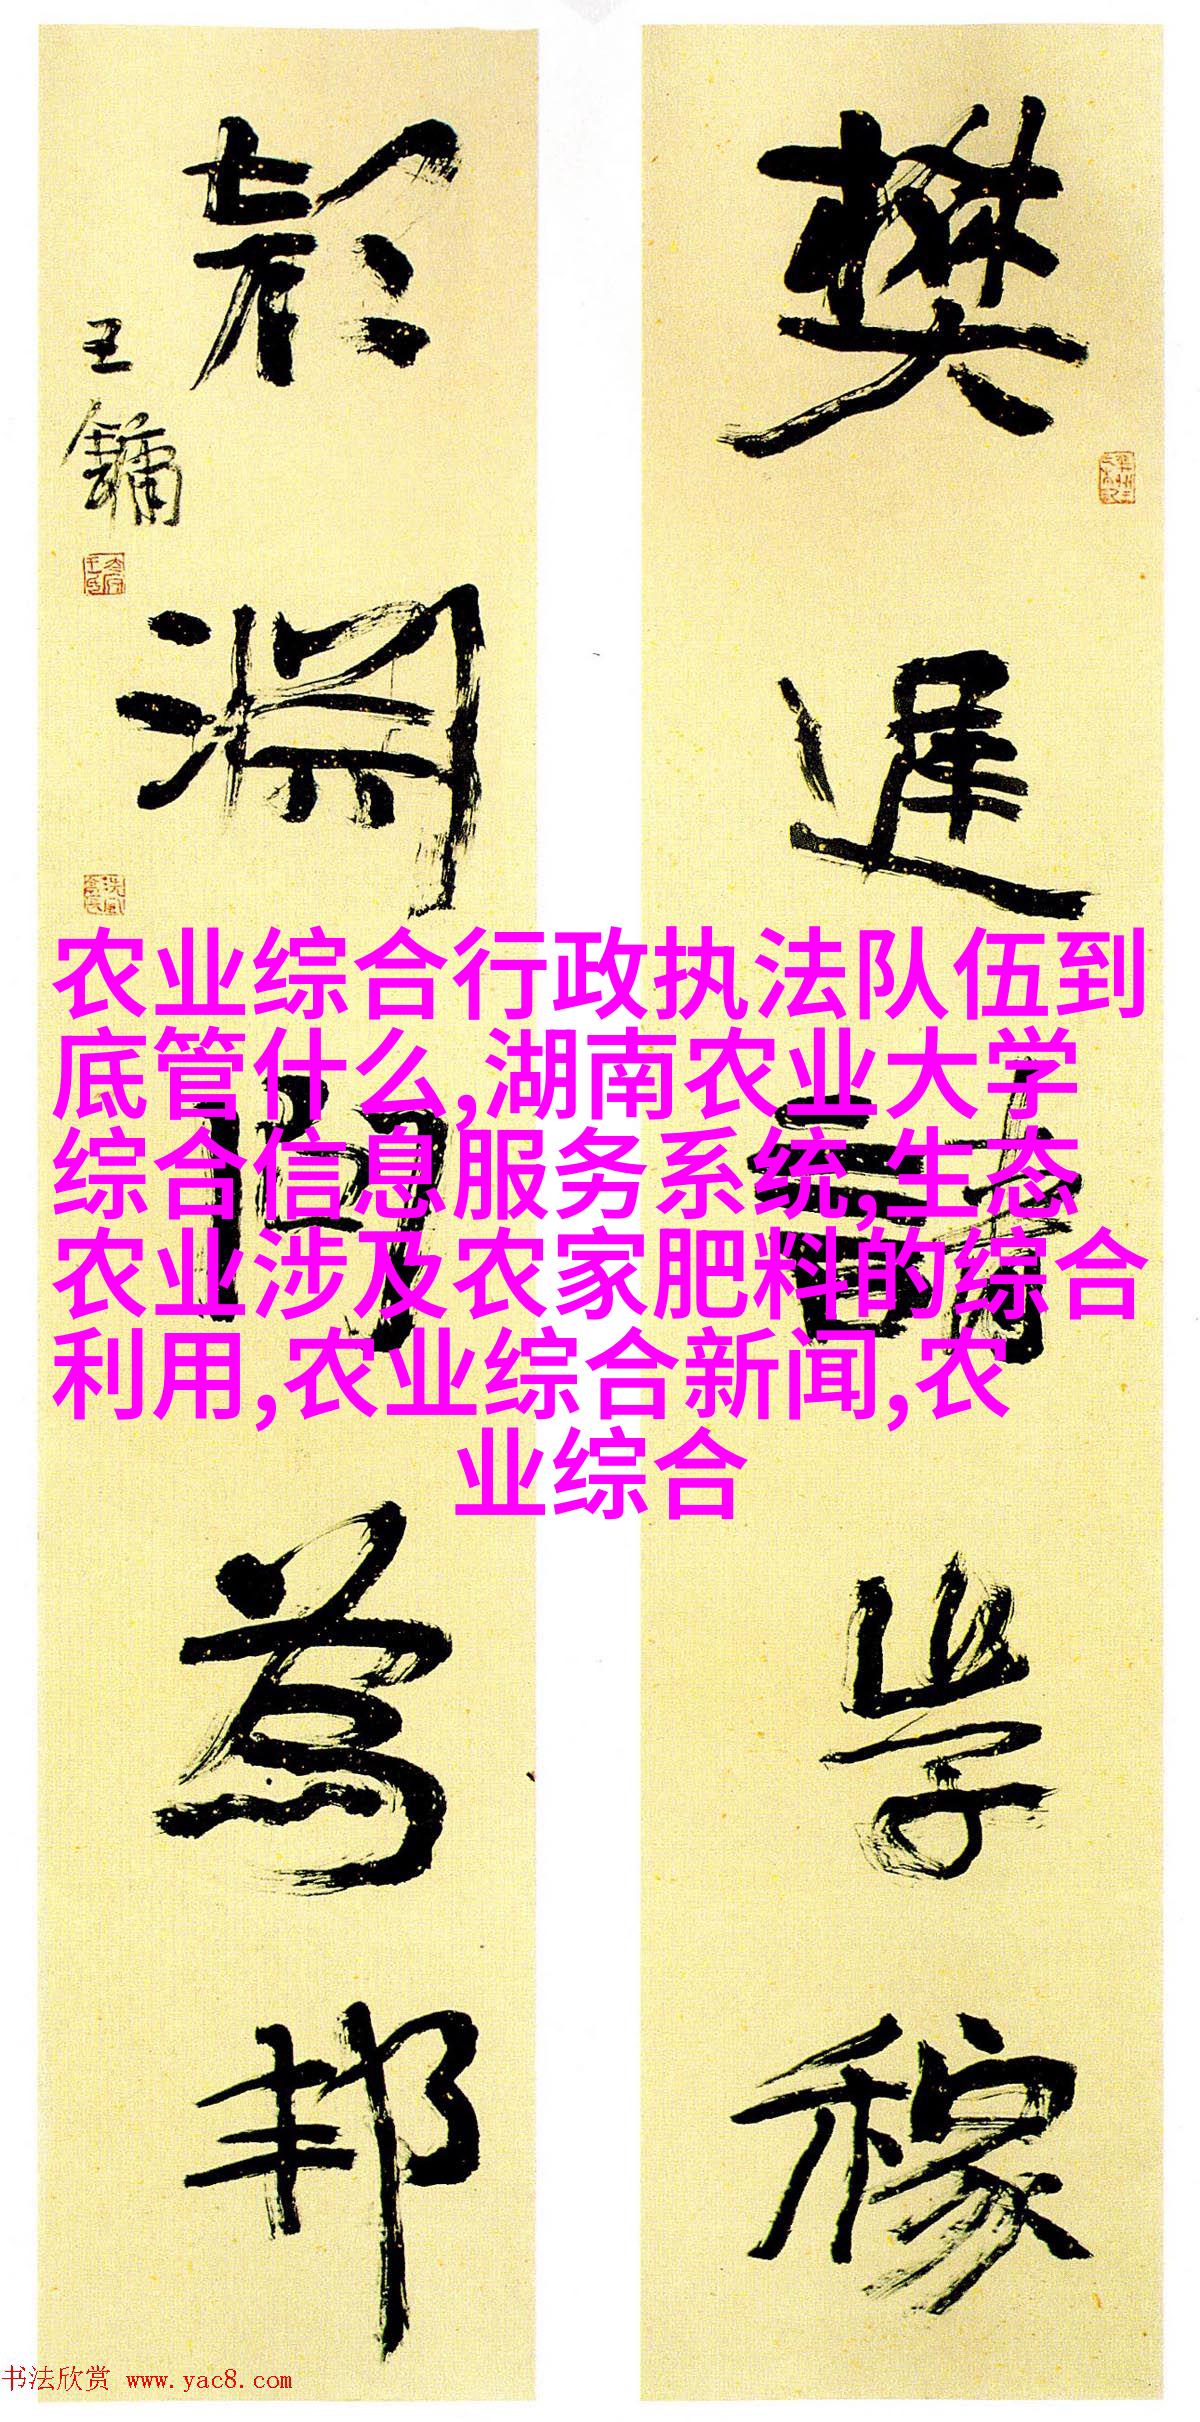 樊遲請學稼
顏淵問為邦
王鏞
农业综合行政执法队伍到
底管什么,湖南农业大学
综合信息服务系统,生态
农业涉及农家肥料的综合
利用,农业综合新闻,农
业综合
书法欣赏 www.yac8.com